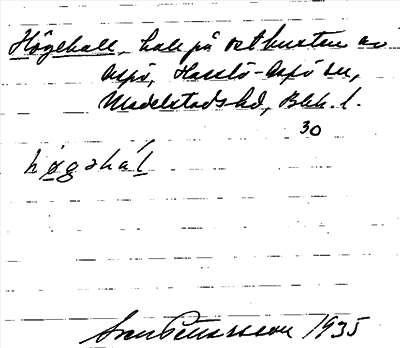 Högehall, hall på ostkusten av
Aspö, Hasslö-Aspö sn,
Medelstads hd, Blek. l.
30
høgəhal
Sven Petersson 1935